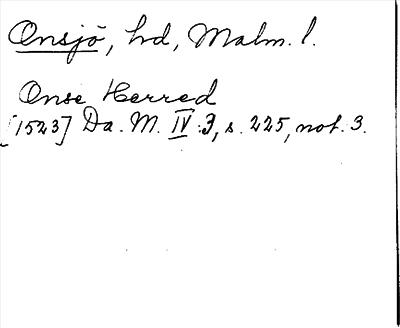 Onsjö, hd, Malm. l.
Onse Herred
[1523] Da. M. IV:3, s. 225, not. 3.